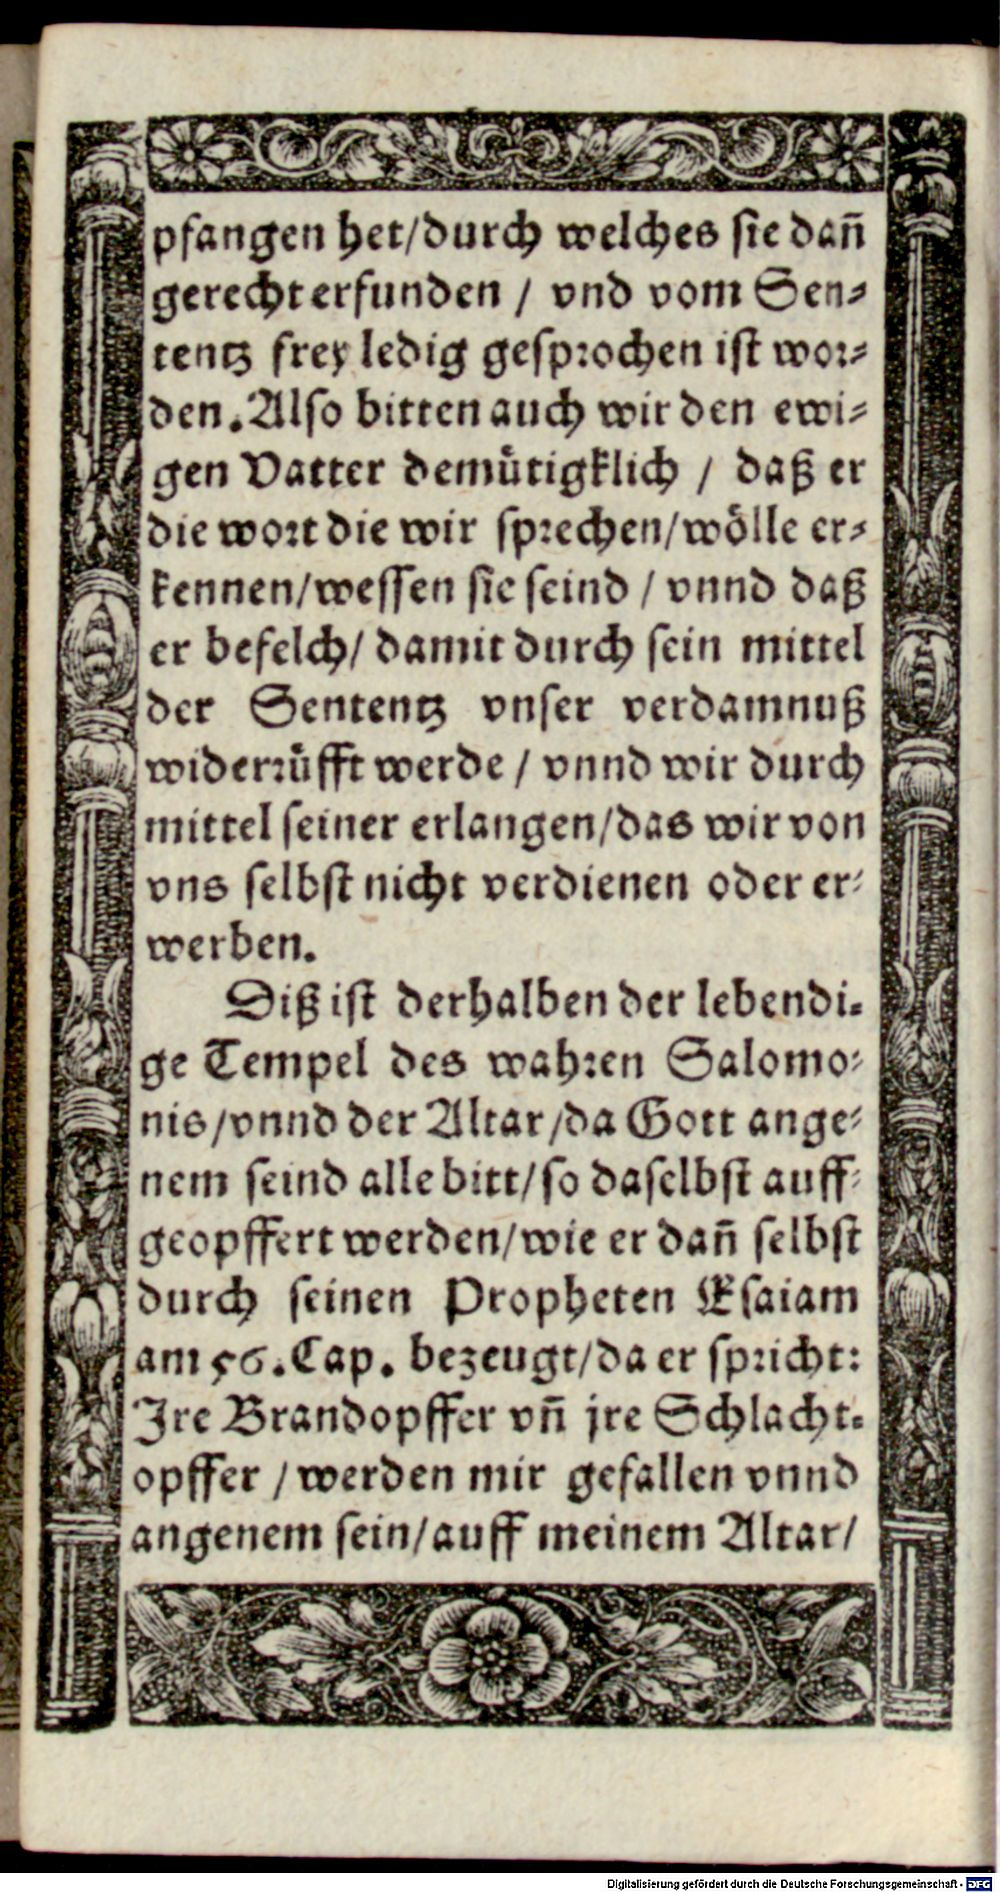 pfangen het/durch welches sie dañ
gerecht erfunden / vnd vom Sen-
tentz frey ledig gesprochen ist wor-
den. Also bitten auch wir den ewi-
gen Vatter demütigklich / daß er
die wort die wir sprechen/wölle er-
kennen/wessen sie seind / vnnd daß
er befelch/ damit durch sein mittel
der Sententz vnser verdamnuß
widerrüfft werde / vnnd wir durch
mittel seiner erlangen/das wir von
vns selbst nicht verdienen oder er-
werben.
Diß ist derhalben der lebendi-
ge Tempel des wahren Salomo-
nis/vnnd der Altar/da Gott ange-
nem seind alle bitt/so daselbst auff-
geopffert werden/wie er dañ selbst
durch seinen Propheten Esaiam
am 56. Cap. bezeugt/da er spricht:
Ire Brandopffer vñ jre Schlacht-
opffer / werden mir gefallen vnnd
angenem sein/auff meinem Altar/
Digitalisierung gefördert durch die Deutsche Forschungsgemeinschaft - DFG